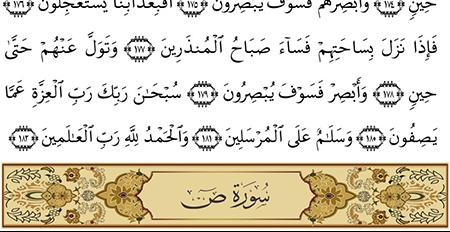 حِينٍ ﴿١٧٤﴾ وَأَبْصِرْهُمْ فَسَوْفَ يُبْصِرُونَ ﴿١٧٥﴾ أَفَبِعَذَابِنَا يَسْتَعْجِلُونَ ﴿١٧٦﴾
فَإِذَا نَزَلَ بِسَاحَتِهِمْ فَسَآءَ صَبَاحُ ٱلْمُنذَرِينَ ﴿١٧٧﴾ وَتَوَلَّ عَنْهُمْ حَتَّىٰ
حِينٍ ﴿١٧٨﴾ وَأَبْصِرْ فَسَوْفَ يُبْصِرُونَ ﴿١٧٩﴾ سُبْحَـٰنَ رَبِّكَ رَبِّ ٱلْعِزَّةِ عَمَّا
يَصِفُونَ ﴿١٨٠﴾ وَسَلَـٰمٌ عَلَى ٱلْمُرْسَلِينَ ﴿١٨١﴾ وَٱلْحَمْدُ لِلَّهِ رَبِّ ٱلْعَـٰلَمِينَ ﴿١٨٢﴾
سُورَةُ صٓ